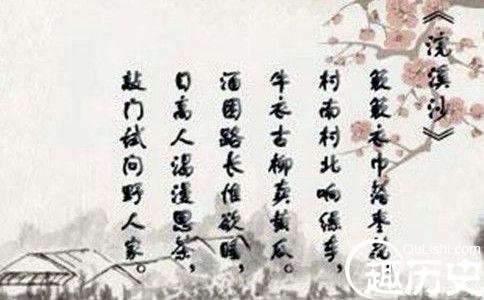 《浣溪沙》
簌簌衣巾落枣花
村南村北响缲车，
牛衣古柳卖黄瓜。
酒困路长惟欲睡，
日高人渴漫思茶，
敲门试问野人家。
QuLishi.com
趣历史